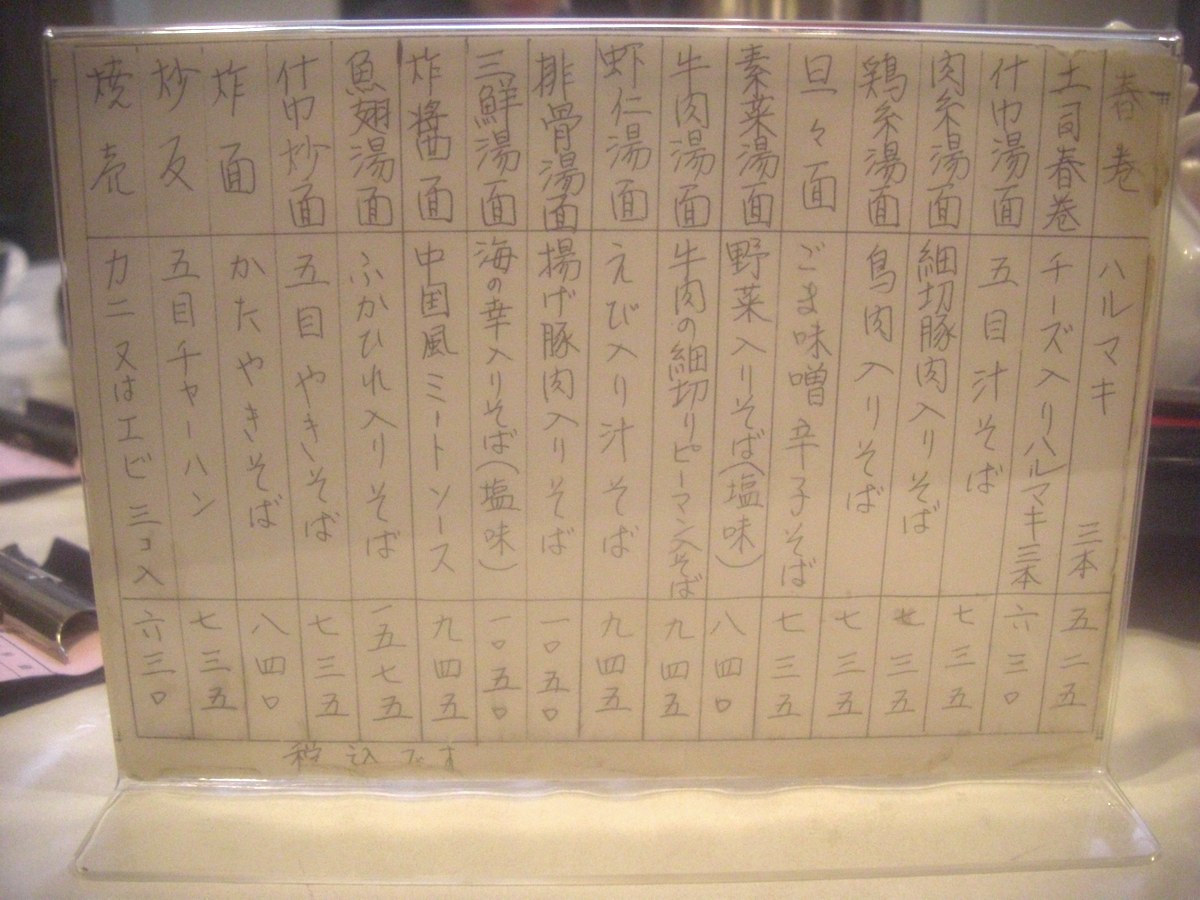 春巻 ハルマキ 三本 五二五
土司春巻 チーズ入りハルマキ三本 六三〇
什巾湯面 五目汁そば 七三五
肉糸湯面 細切豚肉入りそば 七三五
鶏糸湯面 鳥肉入りそば 七三五
旦々面 ごま味噌辛子そば 七三五
素菜湯面 野菜入りそば(塩味) 八四〇
牛肉湯面 牛肉の細切りピーマン入そば 九四五
虾仁湯面 えび入り汁そば 九四五
排骨湯面 揚げ豚肉入りそば 一〇五〇
三鮮湯面 海の幸入りそば(塩味) 一〇五〇
炸醬面 中国風ミートソース 九四五
魚翅湯面 ふかひれ入りそば 一五七五
什巾炒面 五目やきそば 七三五
炸面 かたやきそば 八四〇
炒反 五目チャーハン 七三五
焼売 カニ又はエビ 三コ入 六三〇
税込です